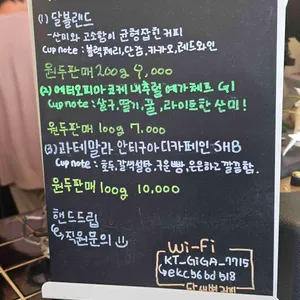 (1) 달블랜드
-산미와 고소함이 균형잡힌 커피
Cup note : 블랙체리, 단감, 카카오, 레드와인
원두판매 200g 9,000
(2) 에티오피아 코케 내추럴 예가체프 G1
Cup note : 살구, 딸기, 꿀, 라이트한 산미!
원두판매 100g 7,000
(3) 과테말라 안티구아 디카페인 SHB
Cup note : 호두, 갈색설탕, 구운빵, 은은하고 깔끔함.
원두판매 100g 10,000
핸드드립
↳직원문의
Wi-Fi
KT_GiGA_7715